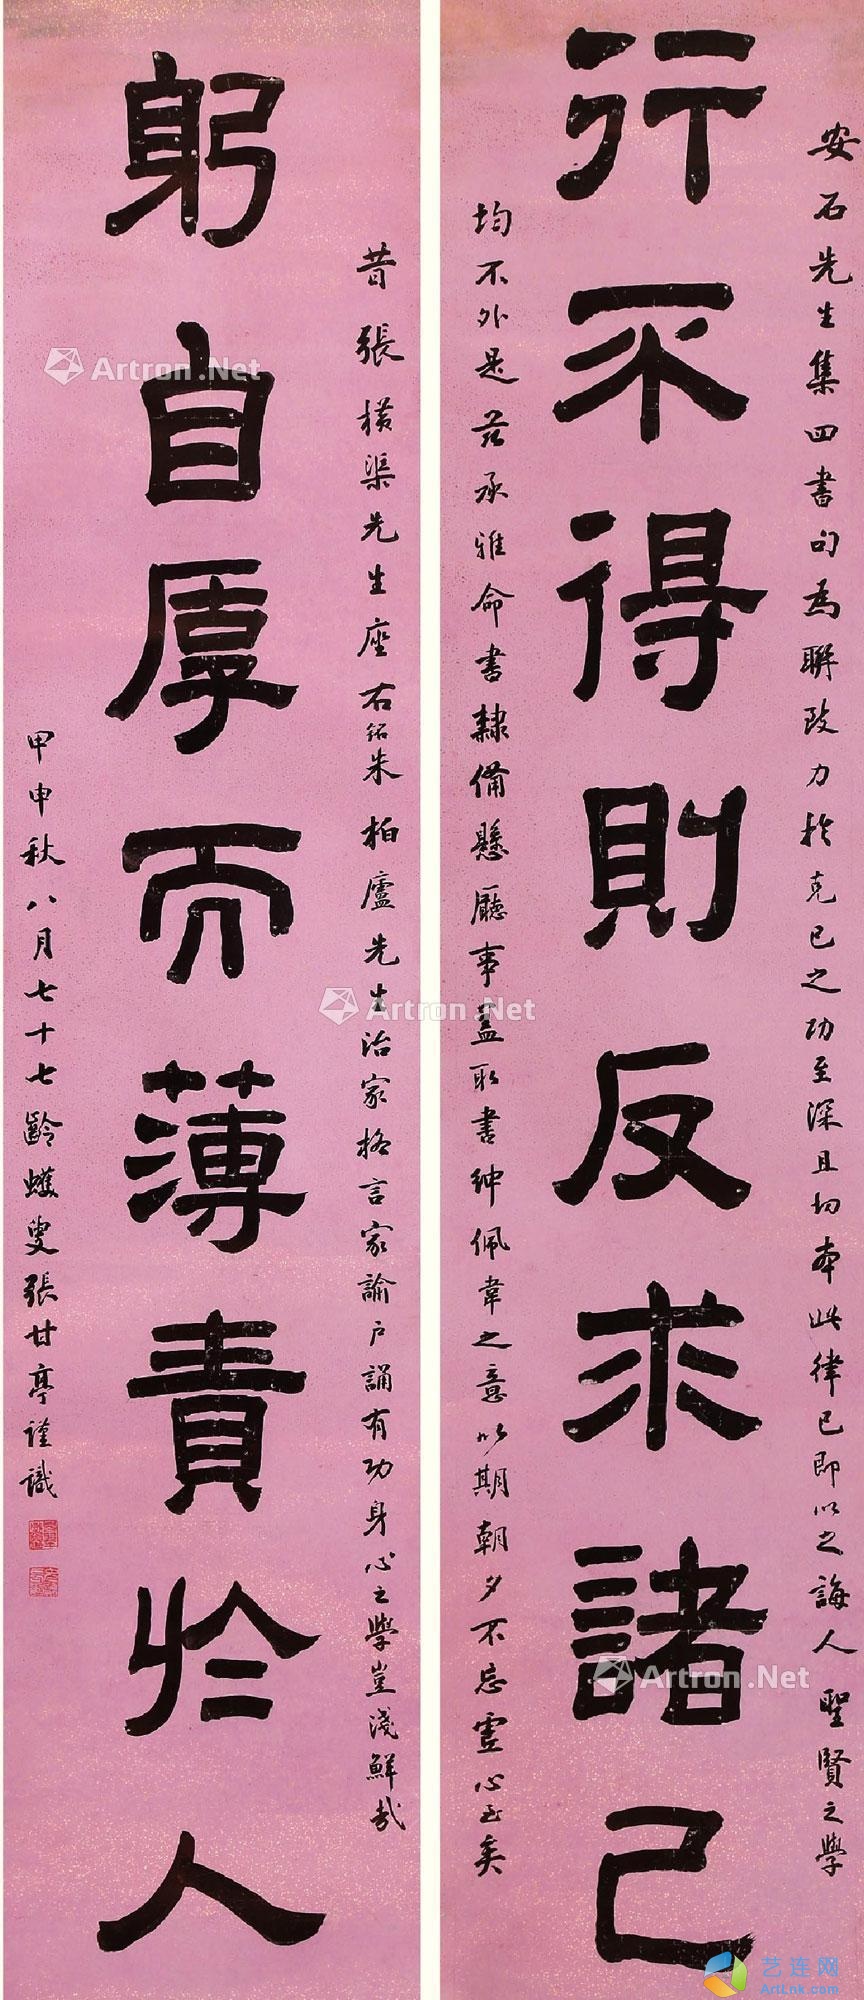 安石先生集四書句為聯致力於克己之功至深且切奉此律己即以之誨人聖賢之學
行不得則反求諸己
均不外是茲承雅命書隸備懸廳事蓋取書紳佩韋之意以期朝夕不忘虛心至矣
昔張橫渠先生座右銘朱柏廬先生治家格言家諭戶誦有功身心之學豈淺鮮哉
躬自厚而薄責於人
甲申秋八月七十七齡蠖叟張甘亭謹識
Artron.Net
Artron.Net
Artron.Net
艺连网
ArtLnk.com